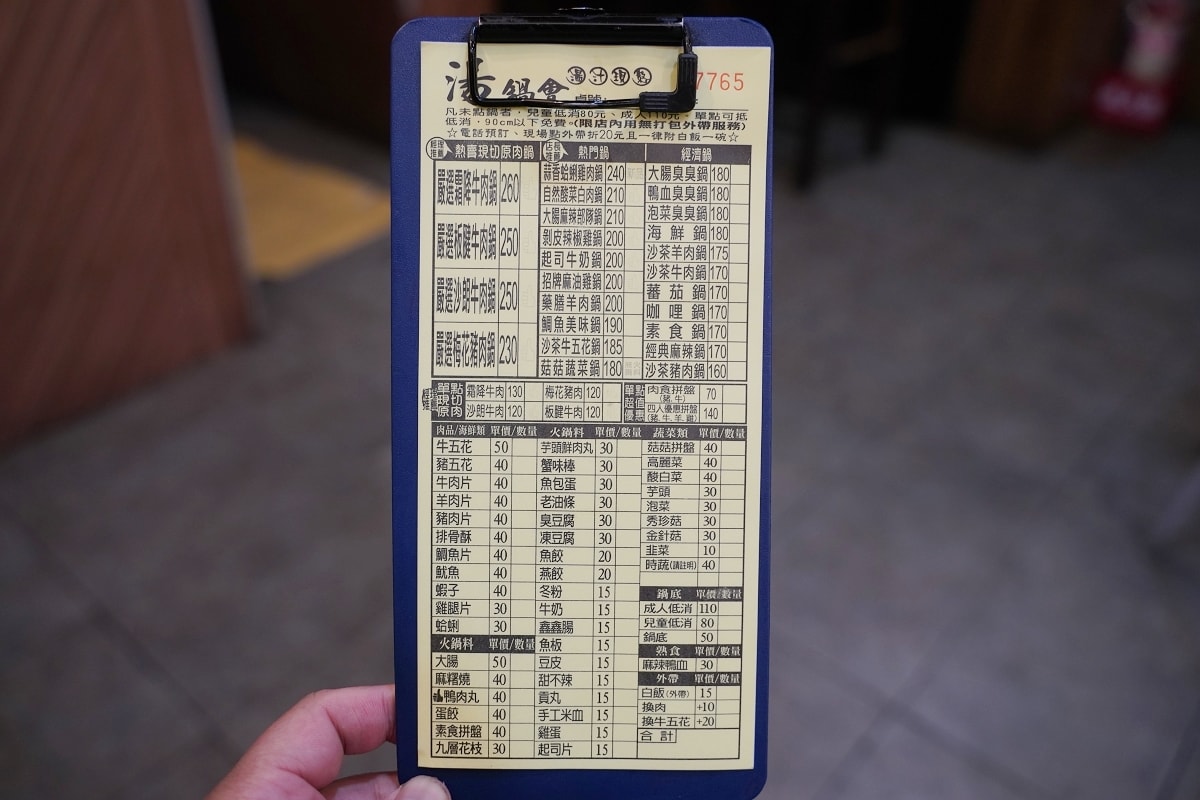 湯鍋會 湯汁現熬 7765
桌號:
凡未點鍋者，兒童低消80元、成人110元。單點可抵
低消，90cm以下免費。(限店內用無打包外帶服務)
☆電話預訂、現場點外帶折20元且一律附白飯一碗☆
經理推薦 熱賣現切原肉鍋
嚴選霜降牛肉鍋 260
嚴選板腱牛肉鍋 250
嚴選沙朗牛肉鍋 250
嚴選梅花豬肉鍋 230
店長推薦 熱門鍋
蒜香蛤蜊雞肉鍋 240
自然酸菜白肉鍋 210
大腸麻辣部隊鍋 210
剝皮辣椒雞鍋 200
起司牛奶鍋 200
招牌麻油雞鍋 200
藥膳羊肉鍋 200
鯛魚美味鍋 190
沙茶牛五花鍋 185
菇菇蔬菜鍋 180
經濟鍋
大腸臭臭鍋 180
鴨血臭臭鍋 180
泡菜臭臭鍋 180
海鮮鍋 180
沙茶羊肉鍋 175
沙茶牛肉鍋 170
蕃茄鍋 170
咖哩鍋 170
素食鍋 170
經典麻辣鍋 170
沙茶豬肉鍋 160
單點現切原肉
霜降牛肉 130 梅花豬肉 120
沙朗牛肉 120 板腱牛肉 120
單點超值優惠
肉食拼盤(豬,牛) 70
四人優惠拼盤(豬,牛,羊,雞) 140
肉品/海鮮類 單價/數量
牛五花 50
豬五花 40
牛肉片 40
羊肉片 40
豬肉片 40
排骨酥 40
鯛魚片 40
魷魚 40
蝦子 40
雞腿片 30
蛤蜊 30
火鍋料 單價/數量
大腸 50
麻糬燒 40
鴨肉丸 40
蛋餃 40
素食拼盤 40
九層花枝 30
火鍋料 單價/數量
芋頭鮮肉丸 30
蟹味棒 30
魚包蛋 30
老油條 30
臭豆腐 30
凍豆腐 30
魚餃 20
燕餃 20
冬粉 15
牛奶 15
鑫鑫腸 15
魚板 15
豆皮 15
甜不辣 15
貢丸 15
手工米血 15
雞蛋 15
起司片 15
蔬菜類 單價/數量
菇菇拼盤 40
高麗菜 40
酸白菜 40
芋頭 30
泡菜 30
秀珍菇 30
金針菇 30
韭菜 10
時蔬(請註明) 40
鍋底 單價/數量
成人低消 110
兒童低消 80
鍋底 50
熟食 單價/數量
麻辣鴨血 30
外帶 單價/數量
白飯(外帶) 15
換肉 +10
換牛五花 +20
合計